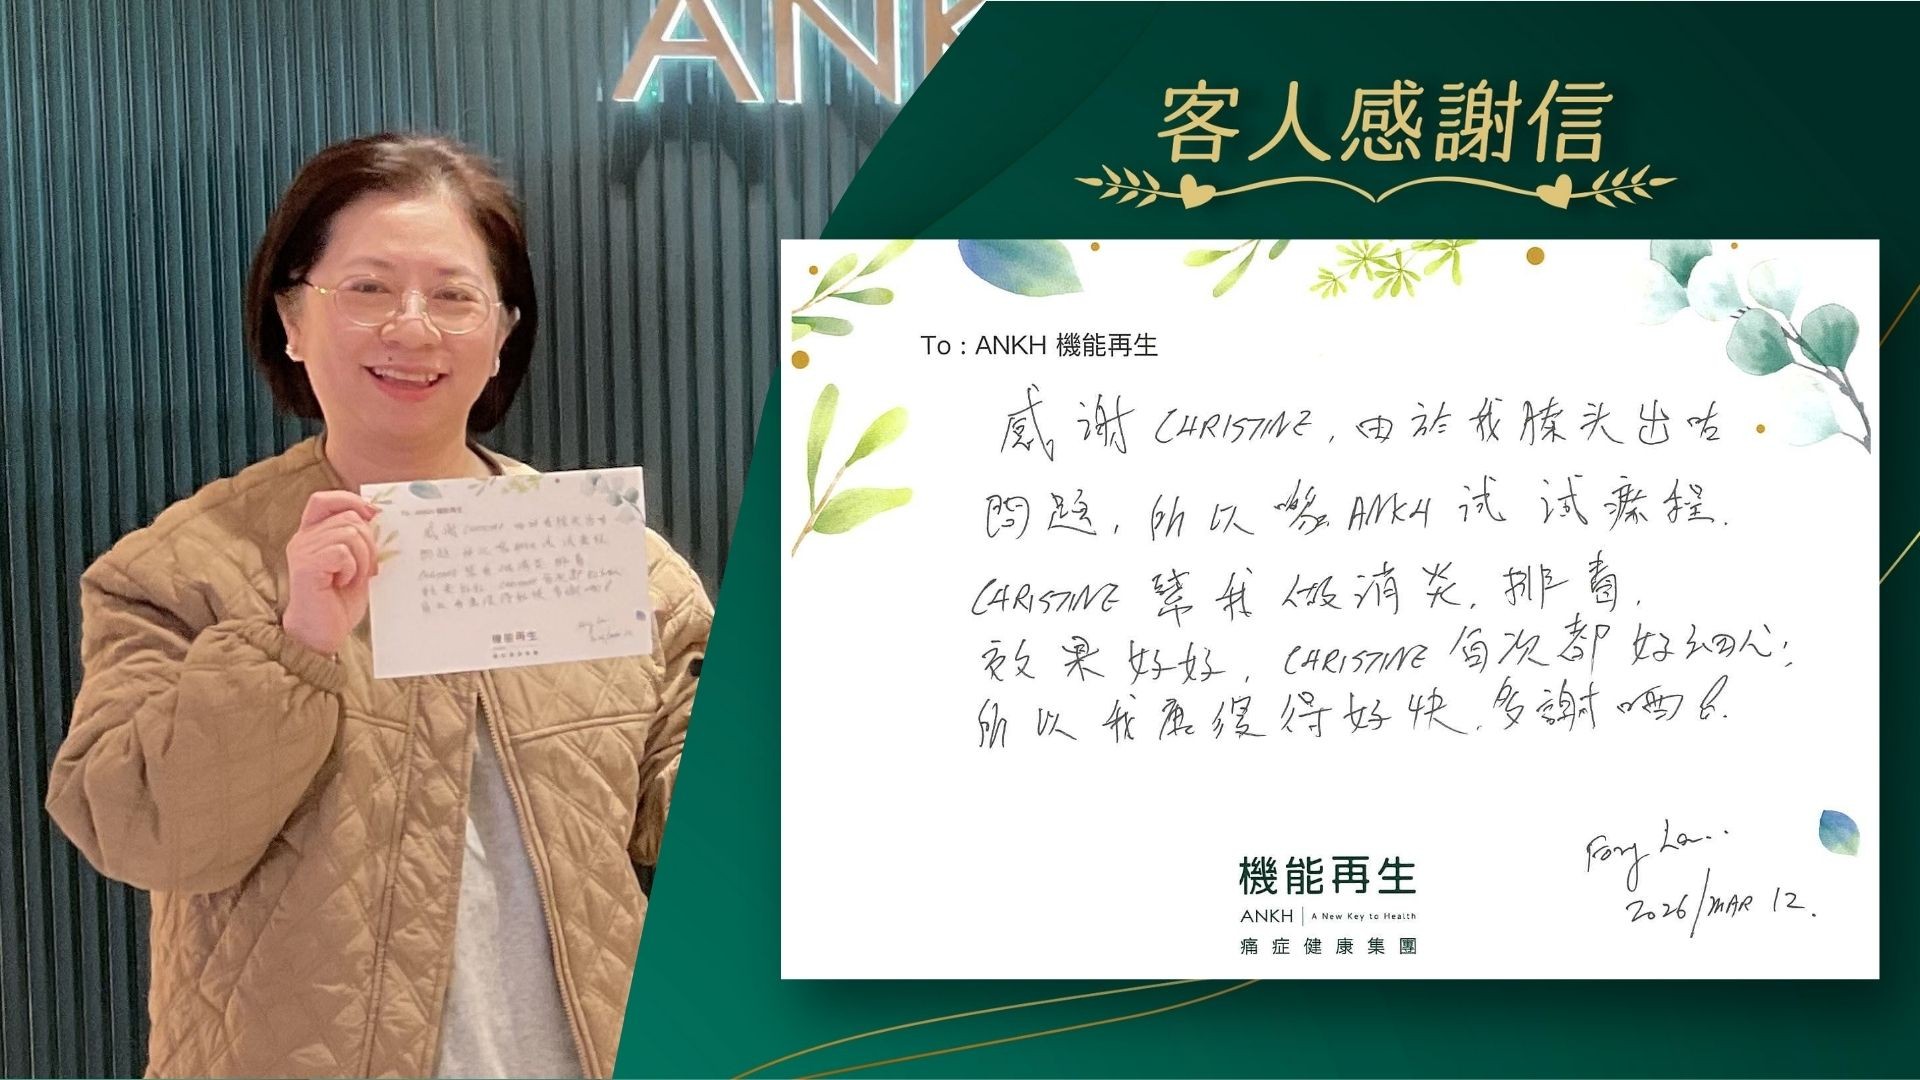 ANK
客人感謝信
To : ANKH 機能再生
感謝 CHRISTINE, 由於我膝头出咕
問題, 所以嚟 ANKH 试 试療程.
CHRISTINE 幫我做消炎, 排毒,
效果好好, CHRISTINE 每次都好細心;
所以我康復得好快, 多謝晒
2026/MAR 12.
機能再生
ANKH | A New Key to Health
痛症健康集團
To : ANKH 機能再生
機能再生